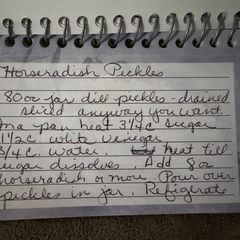 Horseradish Pickles
80 oz jar dill pickles - drained
sliced anyway you want.
In a pan heat 3 1/4 c sugar
1 1/2 c. white vinegar
3/4 c. water heat till
sugar dissolves. Add 8 oz
horseradish or more. Pour over
pickles in jar. Refigerate